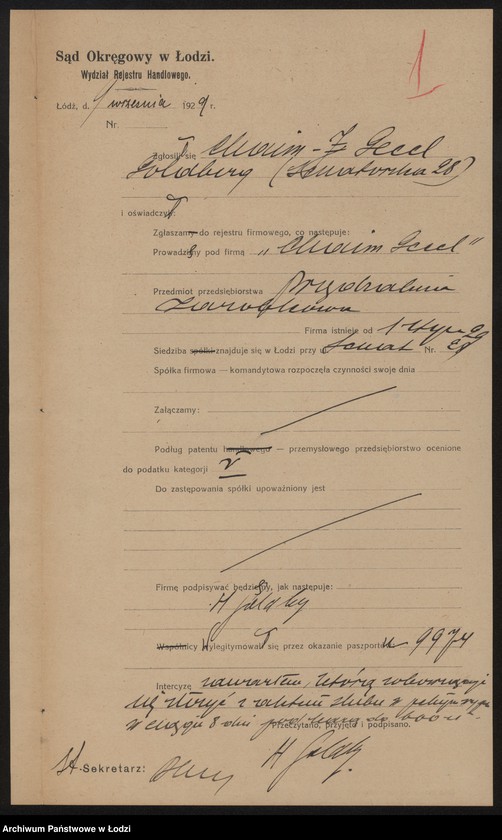 1
Sąd Okręgowy w Łodzi.
Wydział Rejestru Handlowego.
Łódź, d. 9 września 1929 r.
Nr.
Zgłosił się Chaim - Gecel
Goldberg (Senatorska 28)
i oświadczył:
Zgłaszam do rejestru firmowego, co następuje:
Prowadzę pod firmą „Chaim Gecel"
Przedmiot przedsiębiorstwa Przędzalnia
Zarobkowa
Firma istnieje od 1 stycz. 29
Siedziba spółki znajduje się w Łodzi przy ul. Senat. Nr. 28
Spółka firmowa — komandytowa rozpoczęła czynności swoje dnia
Załączamy:
Podług patentu handlowego — przemysłowego przedsiębiorstwo ocenione
do podatku kategorji V
Do zastępowania spółki upoważniony jest
Firmę podpisywać będzie, jak następuje:
H Goldberg
Wspólnicy wylegitymował się przez okazanie paszportu 9974
Intercyzę zawarłem, którą zobowiązuję
się złożyć z aktem ślubu
w ciągu 8 dni
Przeczytano, przyjęto i podpisano.
St. Sekretarz:
Archiwum Państwowe w Łodzi